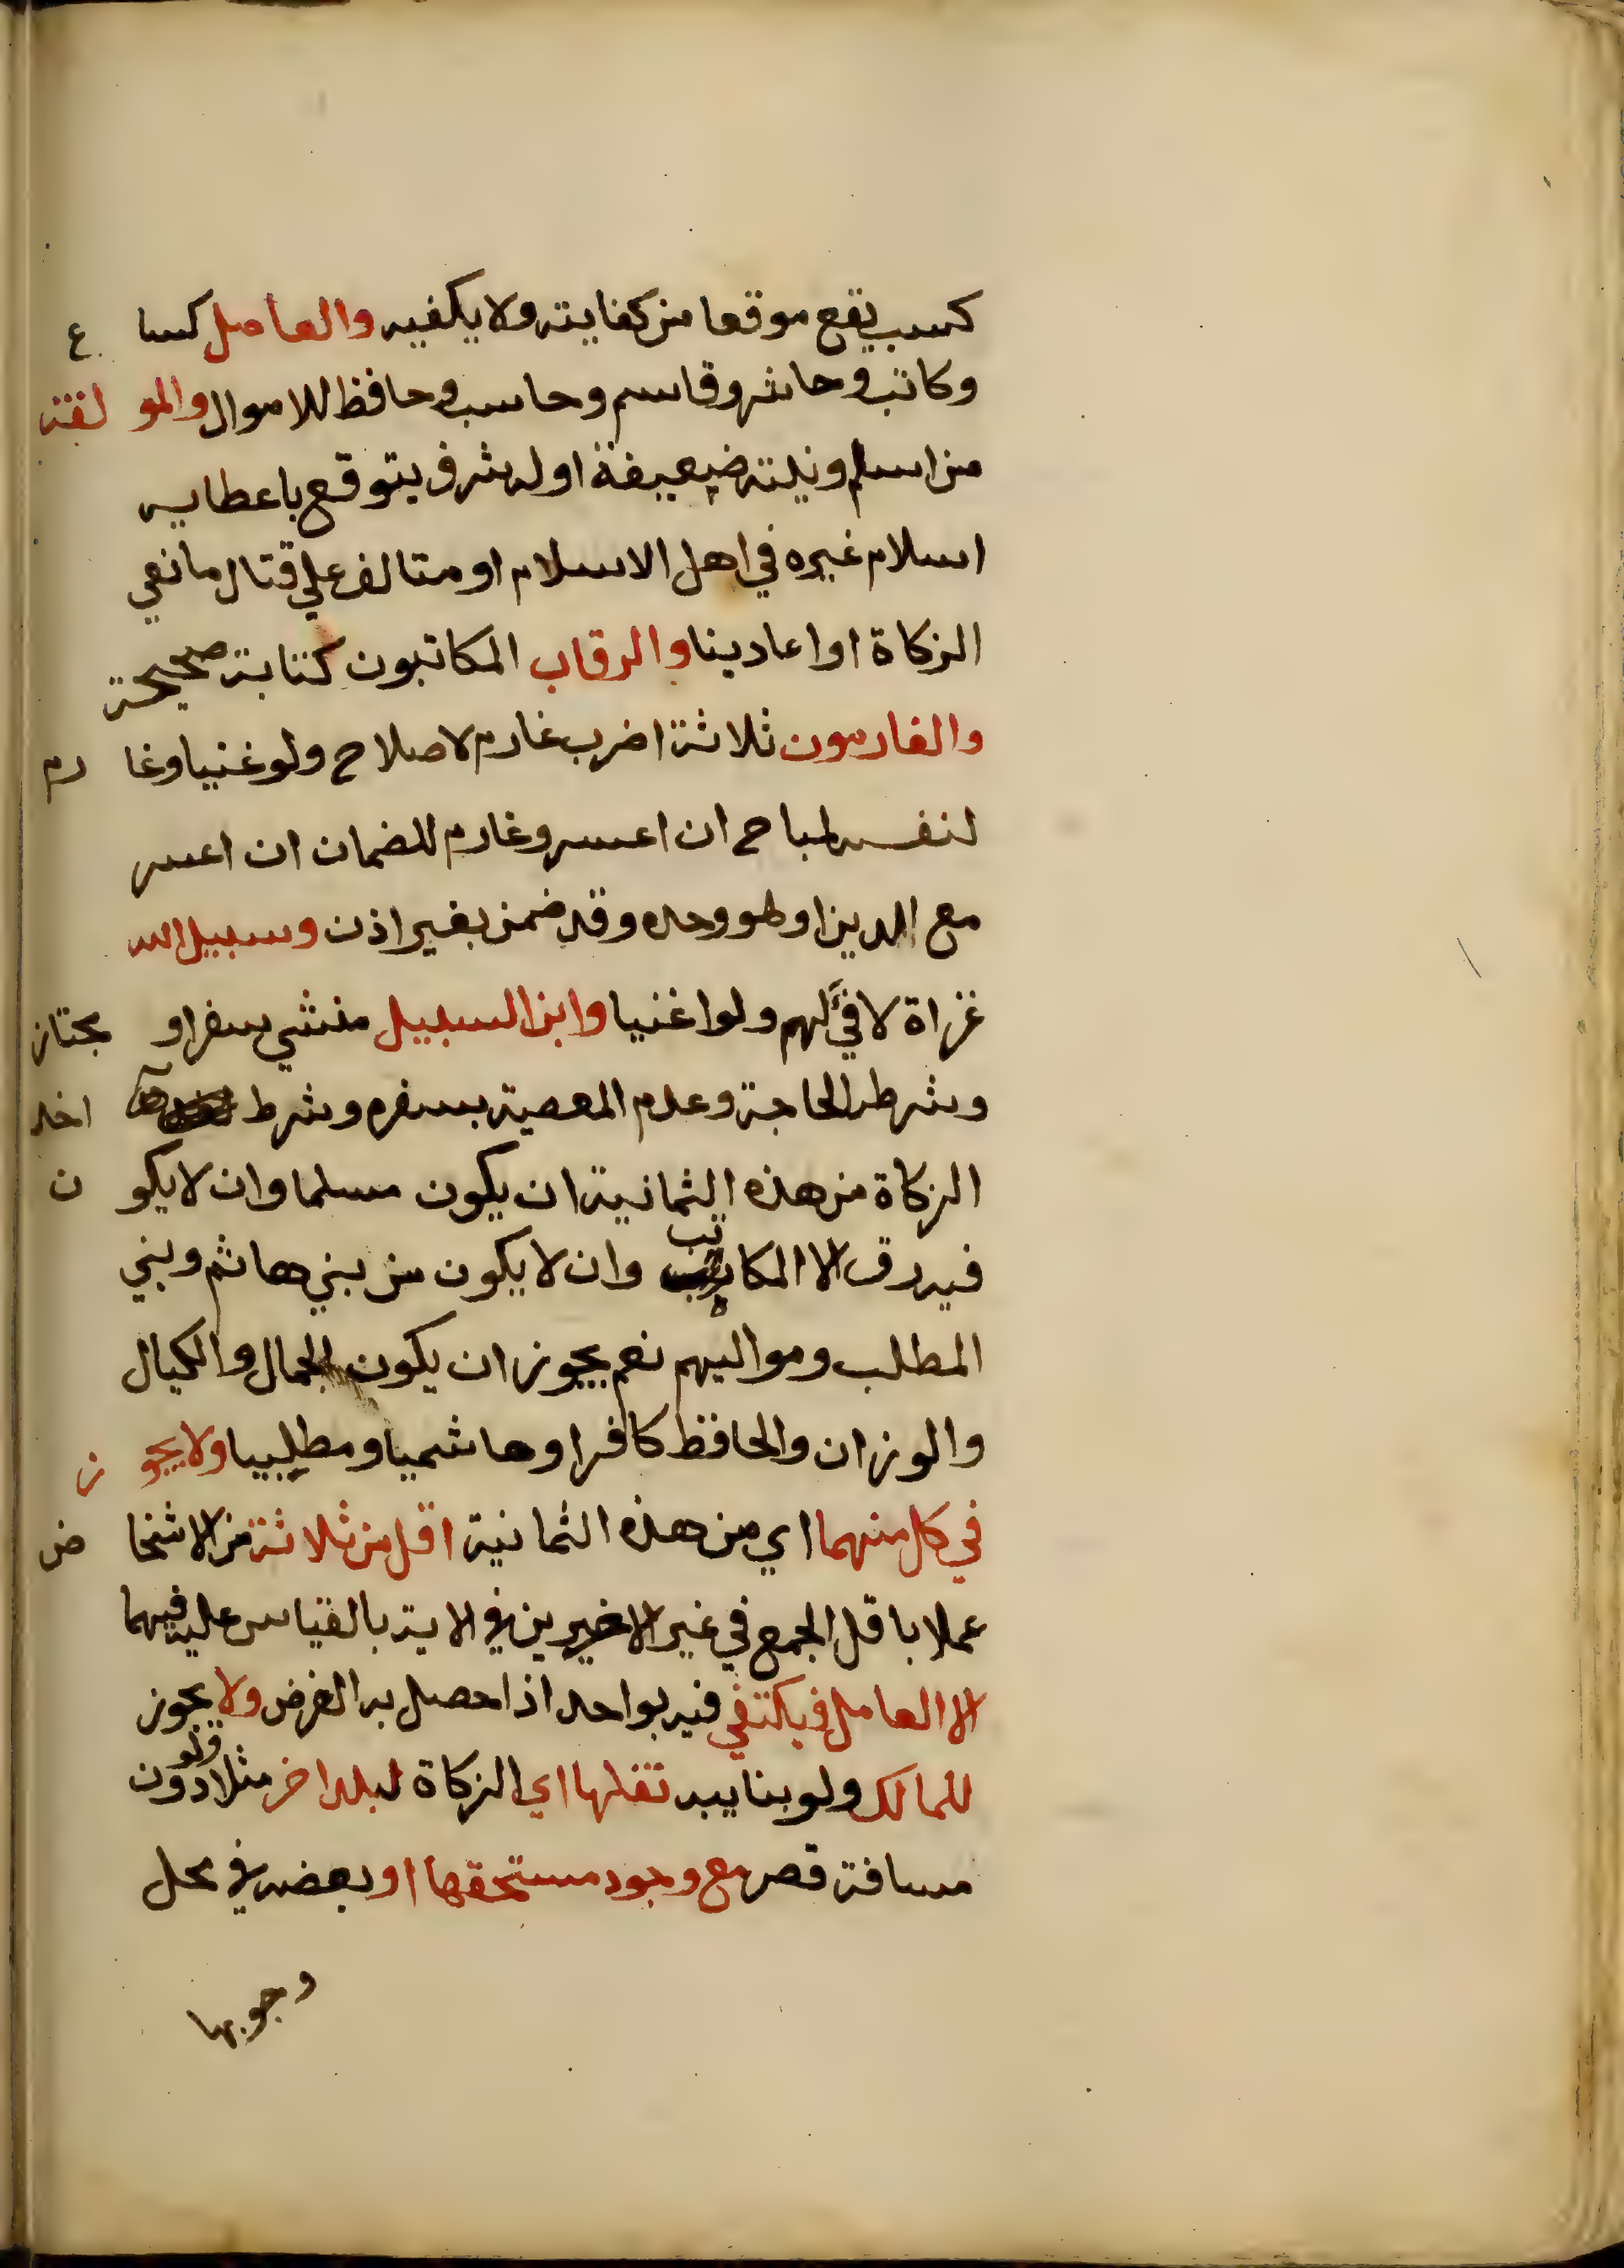 كسب يقع موقعا من كفايته ولا يكفيه والعامل كسا ع
وكاتب وحاشر وقاسم وحاسب وحافظ للاموال والمو لفة
من اسلم ونيته ضعيفة او له شرف يتوقع باعطايه
اسلام غيره في اهل الاسلام او متالف علي قتال مانعي
الزكاة او اعادينا والرقاب المكاتبون كتابة صحيحة
والغارمون ثلاثة اضرب غارم لاصلاح ولو غنيا وغا رم
لنفسه لمباح ان اعسر وغارم للضمان ان اعسر
مع المدين او هو وحده وقد ضمن بغير اذن وسبيل الله
غزاة لا فيَّ لهم ولو اغنيا وابن السبيل منشي سفر او مجتاز
وشرطه الحاجة وعدم المعصية بسفره وشرط اخذ
الزكاة من هذه الثمانية ان يكون مسلما وان لا يكو ن
فيه رق الا المكاتب وان لا يكون من بني هاشم وبني
المطلب ومواليهم نعم يجوز ان يكون الجمال والكيال
والوزان والحافظ كافرا وهاشميا ومطلبيا ولا يجو ز
في كل منهما اي من هذه الثمانية اقل من ثلاثة من الاشخا ص
عملا باقل الجمع في غير الاخيرين في الاية بالقياس عليه فيهما
الا العامل فيكتفي فيه بواحد اذا حصل به الغرض ولا يجوز
للمالك ولو بنايبه نقلها اي الزكاة لبلد اخر مثلا ولو دون
مسافة قصر مع وجود مستحقها او بعضه في محل
وجوبها